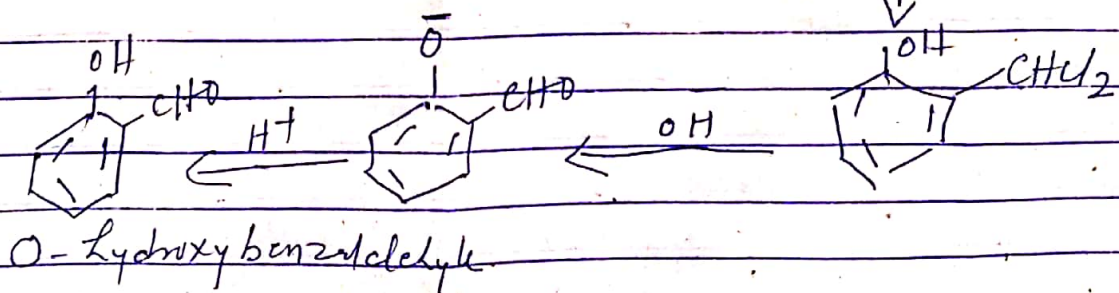 OH CHO H+ Ō CHO OH OH CHCl2
O-hydroxybenzaldehyde